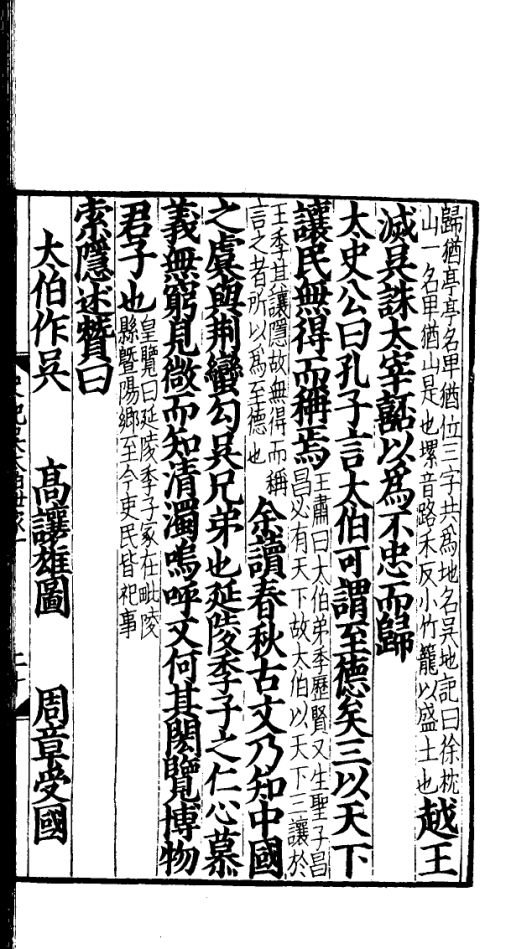 歸猶亭亭名甲猶位三字共為地名吳地記曰徐枕
山一名甲猶山是也螺音路禾反小竹籠以盛土也
越王
滅吳誅太宰嚭以為不忠而歸
太史公曰孔子言太伯可謂至德矣三以天下
讓民無得而稱焉
王肅曰太伯弟季歷賢又生聖子昌
昌必有天下故太伯以天下三讓於
王季其讓隱故無得而稱
言之者所以為至德也
余讀春秋古文乃知中國
之虞與荆蠻勾吳兄弟也延陵季子之仁心慕
義無窮見微而知清濁嗚呼又何其閎覽博物
君子也
皇覽曰延陵季子冢在毗陵
縣暨陽鄉至今吏民皆祀事
索隱述贊曰
太伯作吳 高讓雄圖 周章受國